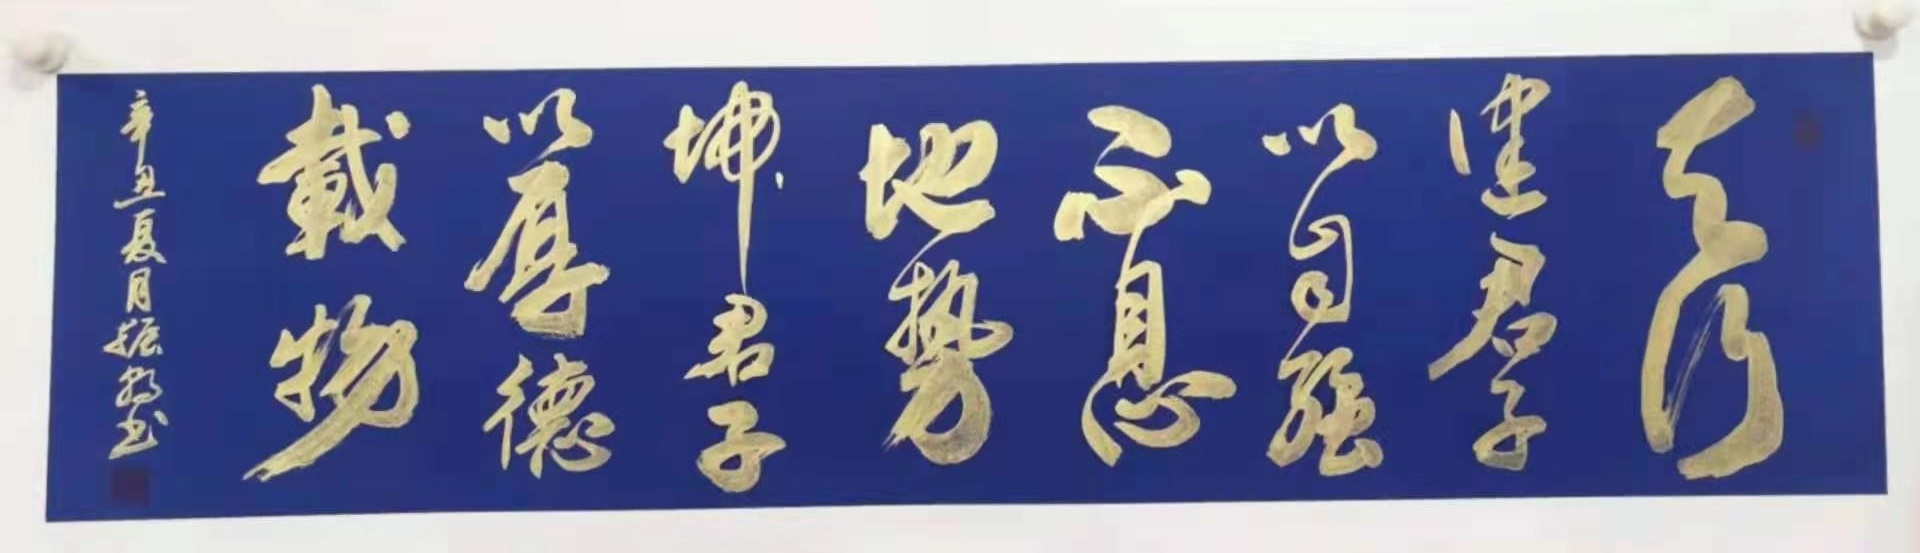 天行
健君子
以自强
不息
地势
坤君子
以厚德
載物
辛丑夏月振
书